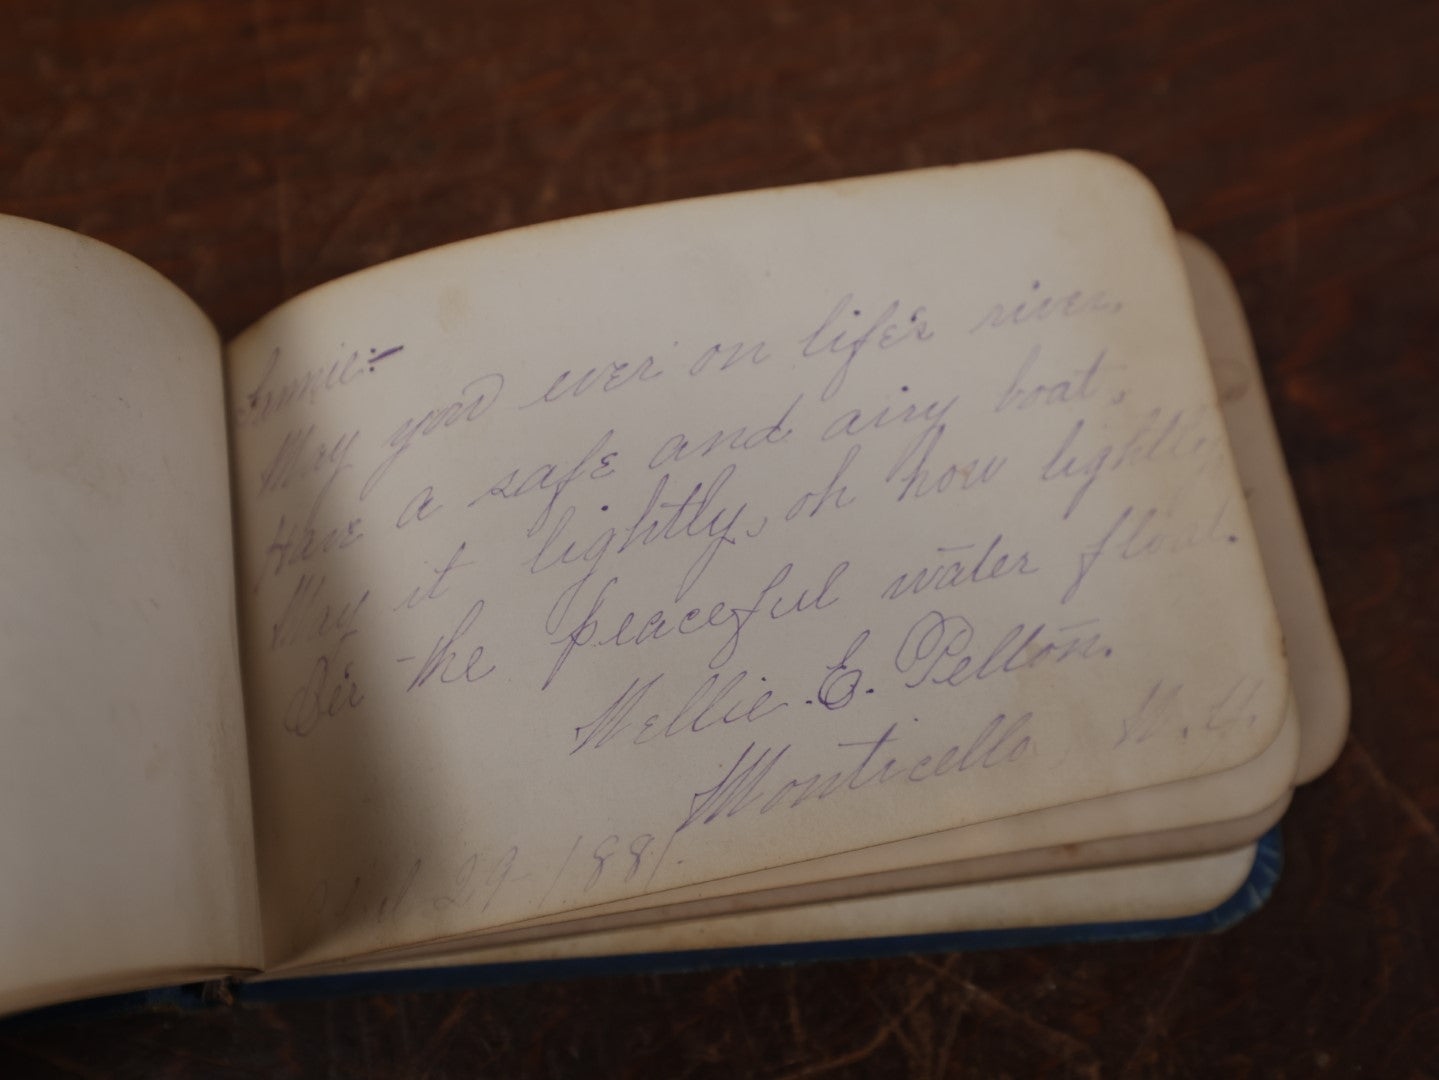 Fannie:-
May you ever on life's river,
Have a safe and airy boat,
May it lightly, oh how lightly
O'er the peaceful water float.
Nellie .E. Pelton.
Monticello N.Y.
April 29 1881.